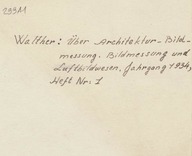 293A1
Walther: Über Architektur-Bild-
messung. Bildmessung und
Luftbildwesen, Jahrgang 1934,
Heft Nr. 1